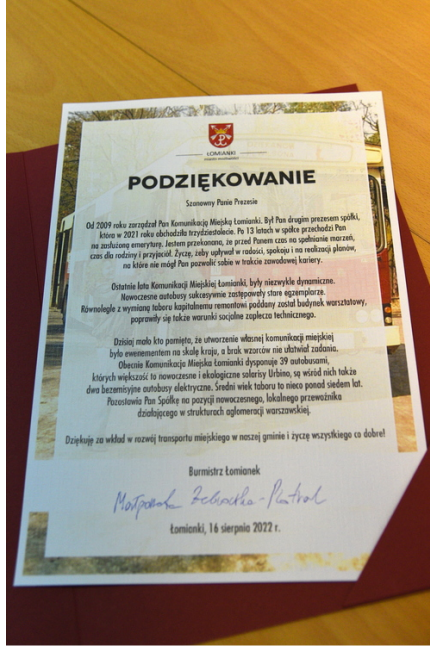 ŁOMIANKI
PODZIĘKOWANIE
Szanowny Panie Prezesie
Od 2009 roku zarządzał Pan Komunikacją Miejską Łomianki. Był Pan drugim prezesem spółki,
która w 2021 roku obchodziła trzydziestolecie. Po 13 latach w spółce przechodzi Pan
na zasłużoną emeryturę. Jestem przekonana, że przed Panem czas na spełnianie marzeń,
czas dla rodziny i przyjaciół. Życzę, żeby upływał w radości, spokoju i na realizacji planów,
na które nie mógł Pan pozwolić sobie w trakcie zawodowej kariery.
Ostatnie lata Komunikacji Miejskiej Łomianki, były niezwykle dynamiczne.
Nowoczesne autobusy sukcesywnie zastępowały stare egzemplarze.
Równolegle z wymianą taboru kapitalnemu remontowi poddany został budynek warsztatowy,
poprawiły się także warunki socjalne zaplecza technicznego.
Dzisiaj mało kto pamięta, że utworzenie własnej komunikacji miejskiej
było ewenementem na skalę kraju, a brak wzorców nie ułatwiał zadania.
Obecnie Komunikacja Miejska Łomianki dysponuje 39 autobusami,
których większość to nowoczesne i ekologiczne solarisy Urbino, są wśród nich także
dwa bezemisyjne autobusy elektryczne. Średni wiek taboru to nieco ponad siedem lat.
Pozostawia Pan Spółkę na pozycji nowoczesnego, lokalnego przewoźnika
działającego w strukturach aglomeracji warszawskiej.
Dziękuję za wkład w rozwój transportu miejskiego w naszej gminie i życzę wszystkiego co dobre!
Burmistrz Łomianek
Łomianki, 16 sierpnia 2022 r.